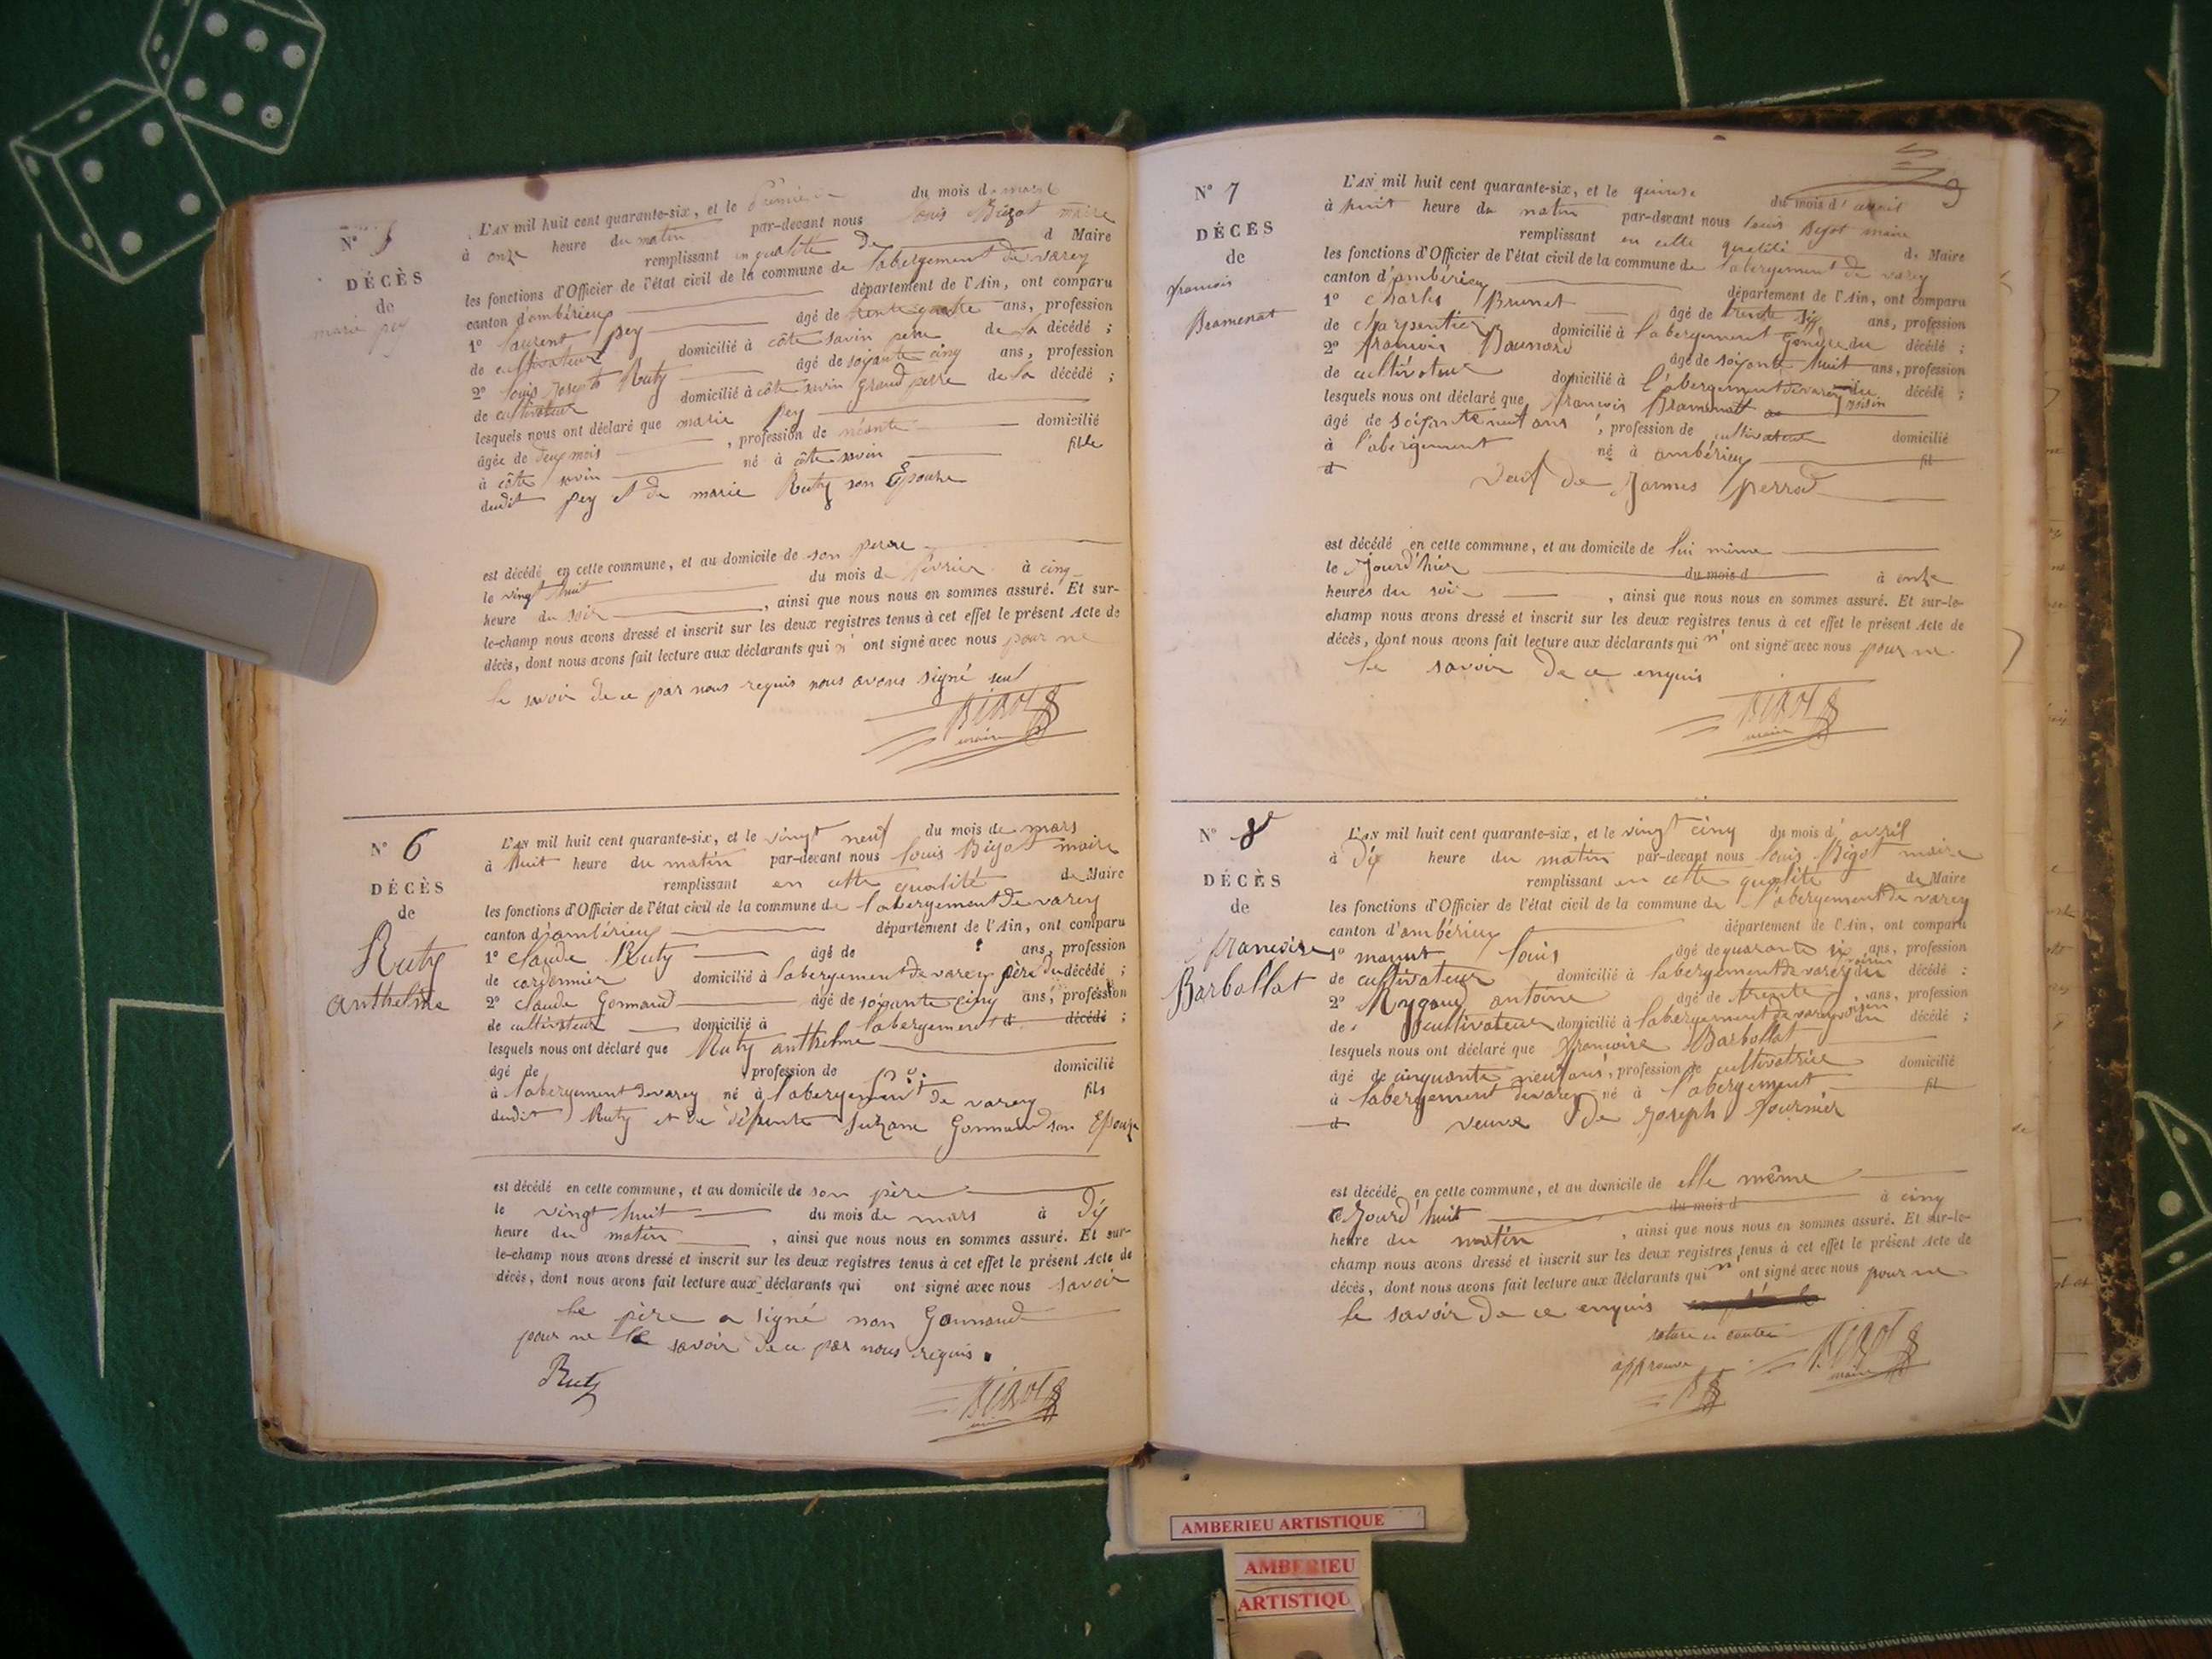 N° 5
DÉCÈS
de
marie pey
L'AN mil huit cent quarante-six, et le premier du mois de mars
à onze heure du matin par-devant nous louis Bigot maire
remplissant en qualité de d Maire
les fonctions d'Officier de l'état civil de la commune de l'abergement de varey
canton d'ambérieu département de l'Ain, ont comparu
1° laurent pey âgé de trente quatre ans, profession
de cultivateur domicilié à côte savin père de la décédé ;
2° louis joseph Ruty âgé de soixante cinq ans, profession
de cultivateur domicilié à côte savin grand père de la décédé ;
lesquels nous ont déclaré que marie pey
âgée de deux mois , profession de néante domicilié
à côte savin né à côte savin fille
dudit pey et de marie Ruty son Epouse
est décédé en cette commune, et au domicile de son perre
le vingt huit du mois de février à cinq
heure du soir , ainsi que nous nous en sommes assuré. Et sur-
le-champ nous avons dressé et inscrit sur les deux registres tenus à cet effet le présent Acte de
décès, dont nous avons fait lecture aux déclarants qui n' ont signé avec nous pour ne
le savoir de ce par nous requis nous avons signé seul
BIGOT
maire
N° 6
DÉCÈS
de
Ruty
anthelme
L'AN mil huit cent quarante-six, et le vingt neuf du mois de mars
à huit heure du matin par-devant nous louis Bigot maire
remplissant en cette qualité de Maire
les fonctions d'Officier de l'état civil de la commune de l'abergement de varey
canton d'ambérieu département de l'Ain, ont comparu
1° claude Ruty âgé de ans, profession
de cordonnier domicilié à l'abergement de varey père du décédé ;
2° claude Gonnand âgé de soixante cinq ans, profession
de cultivateur domicilié à l'abergement d décédé ;
lesquels nous ont déclaré que Ruty anthelme
âgé de profession de domicilié
à l'abergement de varey né à l'abergement de varey fils
dudit Ruty et de défunte suzane Gonnand son Epouse
est décédé en cette commune, et au domicile de son père
le vingt huit du mois de mars à dix
heure du matin , ainsi que nous nous en sommes assuré. Et sur-
le-champ nous avons dressé et inscrit sur les deux registres tenus à cet effet le présent Acte de
décès, dont nous avons fait lecture aux déclarants qui ont signé avec nous savoir
le père a signé non Gonnand
pour ne le savoir de ce par nous requis.
Ruty
BIGOT
9
N° 7
DÉCÈS
de
francois
Bramenat
L'AN mil huit cent quarante-six, et le quinze du mois d'avril
à huit heure du matin par-devant nous louis Bigot maire
remplissant en cette qualité d. Maire
les fonctions d'Officier de l'état civil de la commune de l'abergement de varey
canton d'ambérieu département de l'Ain, ont comparu
1° charles Brunet âgé de trente six ans, profession
de charpentier domicilié à l'abergement gendre du décédé ;
2° francois Bounard âgé de soixante huit ans, profession
de cultivateur domicilié à l'abergement de varey du décédé ;
voisin
lesquels nous ont déclaré que francois Bramenatt
âgé de soixante neuf ans , profession de cultivateur domicilié
à l'abergement né à ambérieu fil
d veuf de perrod
est décédé en cette commune, et au domicile de lui même
le jourd'hier du mois d à onze
heures du soir , ainsi que nous nous en sommes assuré. Et sur-le-
champ nous avons dressé et inscrit sur les deux registres tenus à cet effet le présent Acte de
décès, dont nous avons fait lecture aux déclarants qui n' ont signé avec nous pour ne
le savoir de ce enquis
BIGOT
maire
N° 8
DÉCÈS
de
francoise
Barbollat
L'AN mil huit cent quarante-six, et le vingt cinq du mois d'avril
à dix heure du matin par-devant nous louis Bigot maire
remplissant en cette qualité de Maire
les fonctions d'Officier de l'état civil de la commune de l'abergement de varey
canton d'ambérieu département de l'Ain, ont comparu
1° louis âgé de quarante six ans, profession
de cultivateur domicilié à l'abergement de varey voisin du décédé ;
2° antoine âgé de trente , ans, profession
de cultivateur domicilié à l'abergement de varey voisin du décédé ;
lesquels nous ont déclaré que francoise Barbollat
âgé de cinquante neuf ans, profession de cultivatrice domicilié
à l'abergement de varey né à l'abergement fil
d veuve de joseph fournier
est décédé en cette commune, et au domicile de elle même
ce jourd'huit du mois d à cinq
heure du matin , ainsi que nous nous en sommes assuré. Et sur-le-
champ nous avons dressé et inscrit sur les deux registres tenus à cet effet le présent Acte de
décès, dont nous avons fait lecture aux déclarants qui n' ont signé avec nous pour ne
le savoir de ce enquis
approuvé
BIGOT
maire
AMBERIEU ARTISTIQUE
AMBERIEU
ARTISTIQU